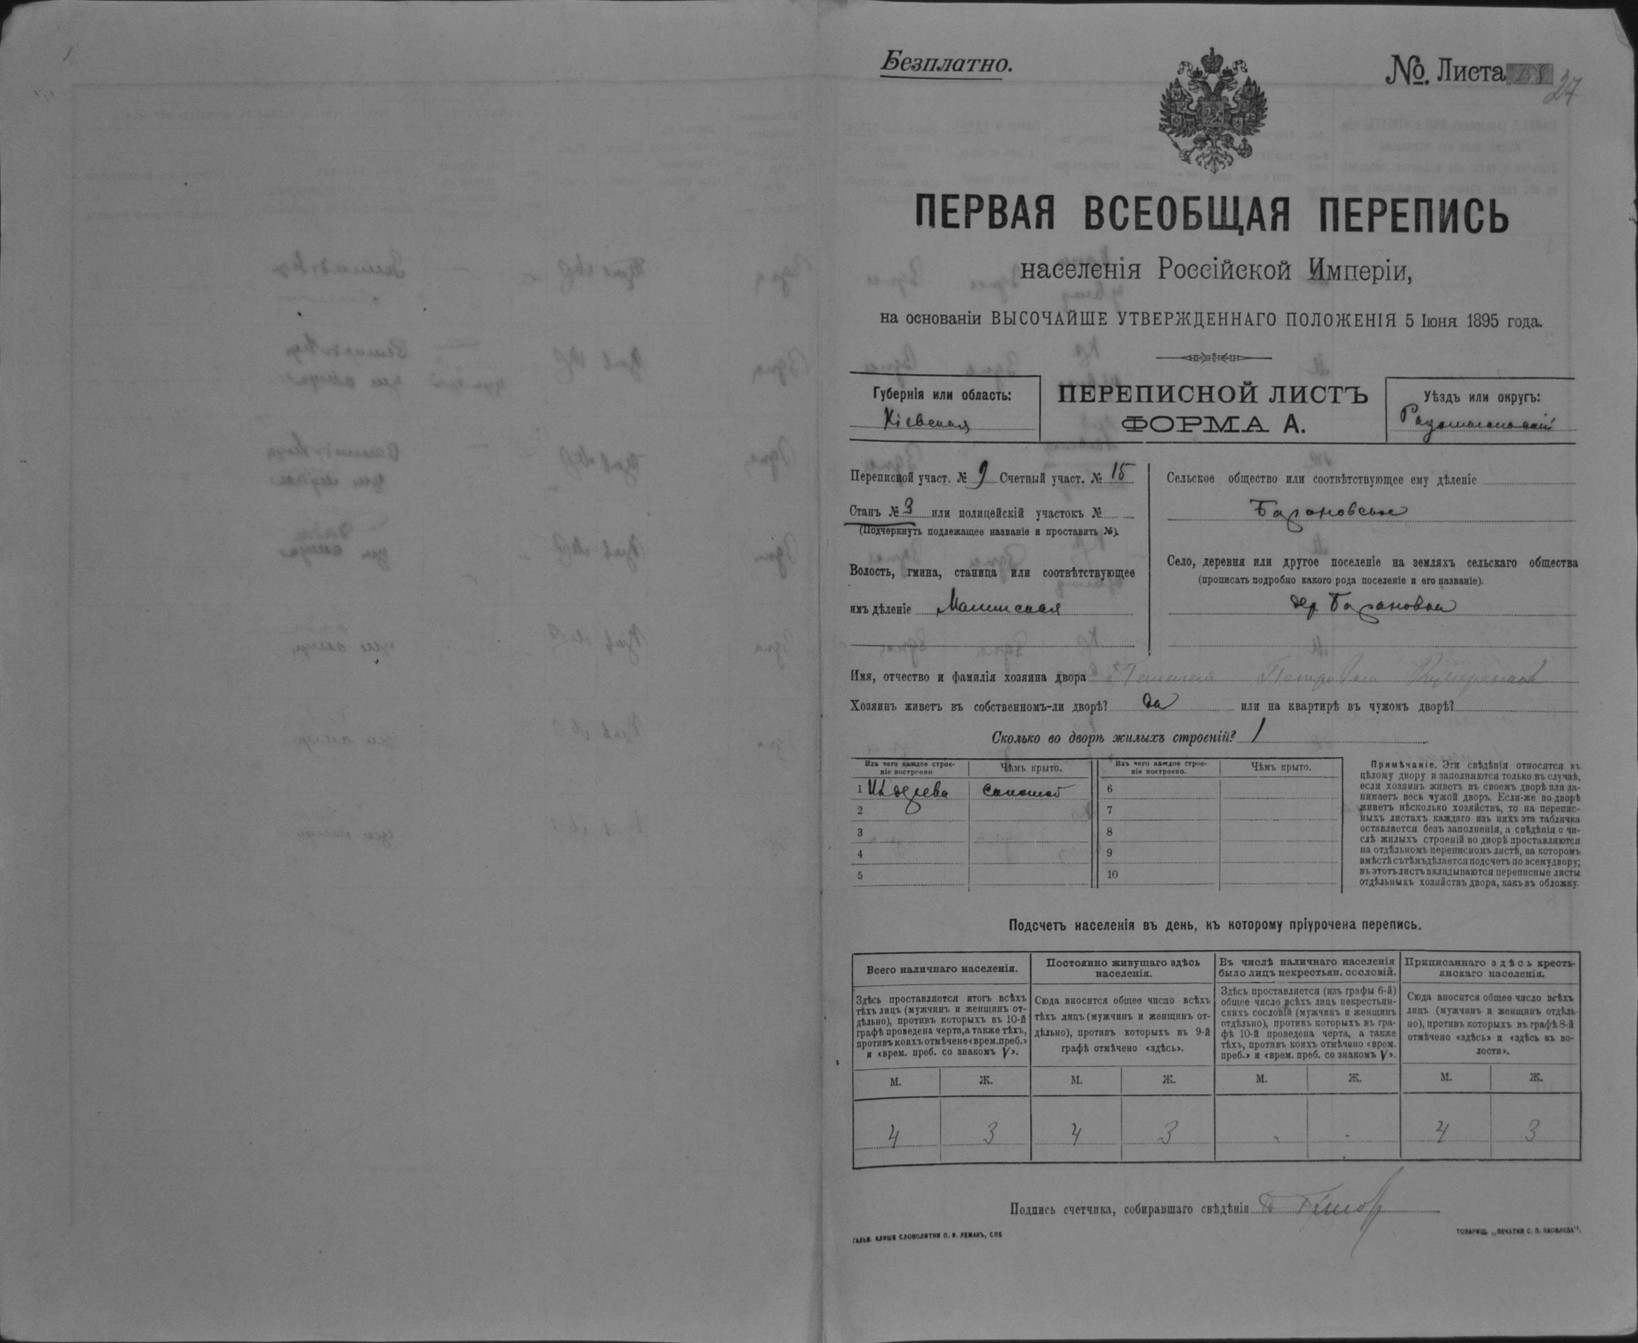 Безплатно.
№. Листа
27
ПЕРВАЯ ВСЕОБЩАЯ ПЕРЕПИСЬ
населенія Россійской Имперіи,
на основаніи ВЫСОЧАЙШЕ УТВЕРЖДЕННАГО ПОЛОЖЕНІЯ 5 Іюня 1895 года.
Губернія или область:
Кіевская
ПЕРЕПИСНОЙ ЛИСТЪ
ФОРМА А.
Уѣздъ или округъ:
Радомысльскій
Переписной участ. № 9 Счетный участ. № 15
Станъ № 3 или полицейскій участокъ №
(Подчеркнуть подлежащее названіе и проставить №).
Волость, гмина, станица или соотвѣтствующее
имъ дѣленіе Малинская
Сельское общество или соотвѣтствующее ему дѣленіе
Барановское
Село, деревня или другое поселеніе на земляхъ сельскаго общества
(прописать подробно какого рода поселеніе и его названіе).
дер Барановка
Имя, отчество и фамилія хозяина двора
Хозяинъ живетъ въ собственномъ-ли дворѣ? да или на квартирѣ въ чужомъ дворѣ?
Сколько во дворѣ жилыхъ строеній? 1
Изъ чего каждое строе-
ніе построено
Чѣмъ крыто.
Изъ чего каждое строе-
ніе построено.
Чѣмъ крыто.
1 Изъ дерева соломой
2
3
4
5
6
7
8
9
10
Примѣчаніе. Эти свѣдѣнія относятся къ
цѣлому двору и заполняются только въ случаѣ,
если хозяинъ живетъ въ своемъ дворѣ или за-
нимаетъ весь чужой дворъ. Если-же во дворѣ
живетъ нѣсколько хозяйствъ, то на перепис-
ныхъ листахъ каждаго изъ нихъ эта табличка
оставляется безъ заполненія, а свѣдѣнія о чи-
слѣ жилыхъ строеній во дворѣ проставляются
на отдѣльномъ переписномъ листѣ, на которомъ
вмѣстѣ съ тѣмъ дѣлается подсчетъ по всему двору;
въ этотъ листъ вкладываются переписные листы
отдѣльныхъ хозяйствъ двора, какъ въ обложку.
Подсчетъ населенія въ день, къ которому пріурочена перепись.
Всего наличнаго населенія.
Здѣсь проставляется итогъ всѣхъ
тѣхъ лицъ (мужчинъ и женщинъ от-
дѣльно), противъ которыхъ въ 10-й
графѣ проведена черта, а также тѣхъ,
противъ коихъ отмѣчено «врем. преб.»
и «врем. преб. со знакомъ V».
Постоянно живущаго здѣсь
населенія.
Сюда вносится общее число всѣхъ
тѣхъ лицъ (мужчинъ и женщинъ от-
дѣльно), противъ которыхъ въ 9-й
графѣ отмѣчено «здѣсь».
Въ числѣ наличнаго населенія
было лицъ некрестьян. сословій.
Здѣсь проставляется (изъ графы 6-й)
общее число всѣхъ лицъ некрестьян-
скихъ сословій (мужчинъ и женщинъ
отдѣльно), противъ которыхъ въ гра-
фѣ 10-й проведена черта, а также
тѣхъ, противъ коихъ отмѣчено «врем.
преб.» и «врем. преб. со знакомъ V».
Приписаннаго здѣсь кресть-
янскаго населенія.
Сюда вносится общее число всѣхъ
лицъ (мужчинъ и женщинъ отдѣль-
но), противъ которыхъ въ графѣ 8-й
отмѣчено «здѣсь» и «здѣсь въ во-
лости».
М. Ж. М. Ж. М. Ж. М. Ж.
4 3 4 3 - - 4 3
Подпись счетчика, собиравшаго свѣдѣнія
ГАЛЬВ. КЛИШЕ СЛОВОЛИТНИ О. И. ЛЕМАНЪ, СПБ
ТОВАРИЩ. „ПЕЧАТНЯ С. П. ЯКОВЛЕВА".